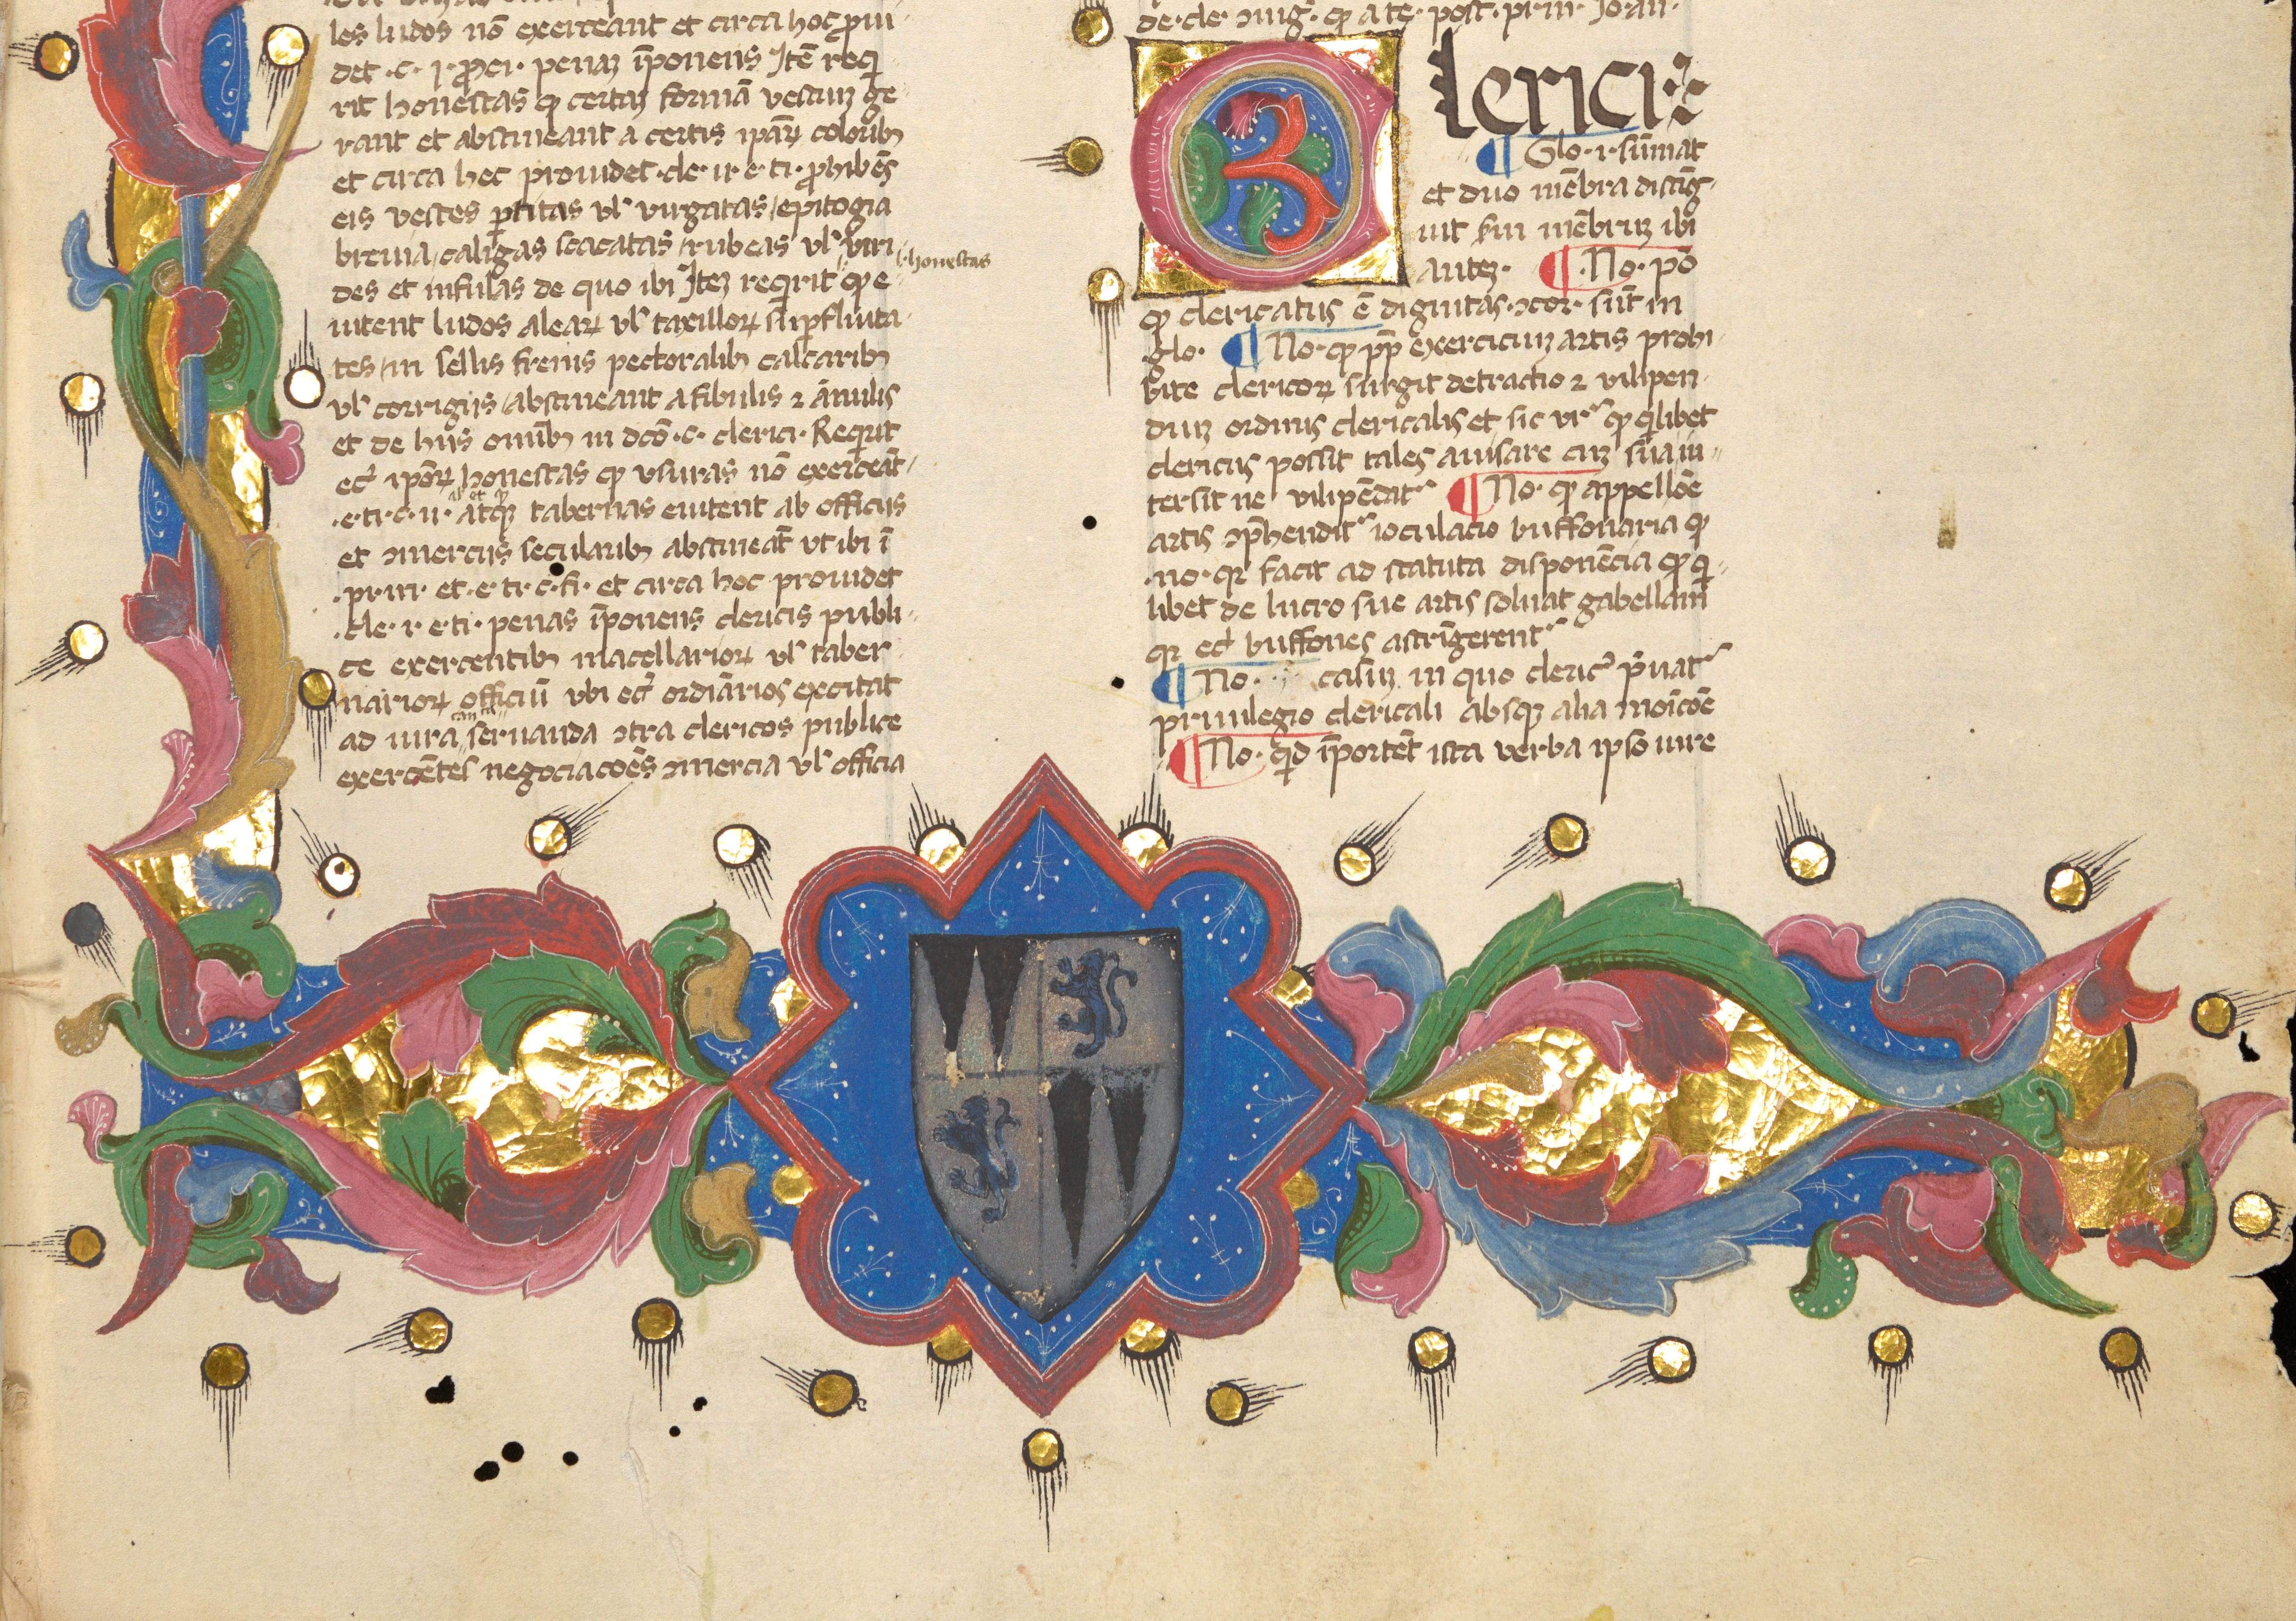 les ludos nō exerceant et circa hoc ꝓui
det ·c· j· ꝓcı· penaꝫ īponens Itē req
rit honestas ꝙ certaꝫ formā vestiuꝫ ge
rant et abstineant a certis ipāꝝ coloribꝫ
et circa hec prouidet·cle·ii·e·ti·ꝓhibēs
eis vestes ꝑtitas vl' virgatas epitogia
breuia caligas scacatas rubeas vl' viri
·honestas
des et infulas de quo ibi Iteꝫ reqrit ꝙ e
uitent ludos aleaꝝ vl' taxilloꝝ suꝑfluita
tes in sellis frenis pectoralibꝫ calcaribꝫ
vl' corrigiis abstineant a fibulis ⁊ ānulis
et de hiis om̄ibꝫ in dcō·c·clerici·Requit
ec̄ ipōꝝ honestas ꝙ vsuras nō exerceāt
·e·ti·c·ii·atqꝫ tabernas euitent ab officiis
et ↄmerciis secularibꝫ abstineāt vt ibi ī
·prin·et·e·ti·c·fi·et circa hoc prouidet
·cle·i·e·ti·penas īponens clericis publi
ce exercentibꝫ macellarioꝝ vl' taber
narioꝝ officiū vbi ec̄ ordīarios excitat
ad iura seruanda ↄtra clericos publice
exercētes negociacōēs ↄmercia vl' officia
de·cle·ↄiug·ꝙ a te·post·prin·Jo·an·
Clerici
¶ Glo·i·sūmat
et duo mēbra distīg
uit sm mēbruꝫ ibi
auteꝫ· ¶·No·pō
ꝙ clericatus ē dignitas·ↄcor·sūt in
glo· ¶ No·ꝙ ꝓp exerciciuꝫ artis prohi
bite clericoꝝ surgit detractio ⁊ vilipen
diuꝫ ordinis clericalis et sic vr̄ ꝙ qlibet
clericus possit tales auisare cuꝫ sua in
tersit ne vilipēdat' ¶ No·ꝙ appellōe
artis ↄp̄hendit' ioculacio buffonaria ꝙ
·no·qꝛ facit ad statuta disponēcia ꝙ q
libet de lucro sue artis soluat gabellam
qꝛ ec̄ buffones astrīgerent'
¶ No· casuꝫ in quo cleric' p̄uat'
priuilegio clericali absqꝫ alia moīcōē
¶ No·qd īportēt ista verba ipso iure